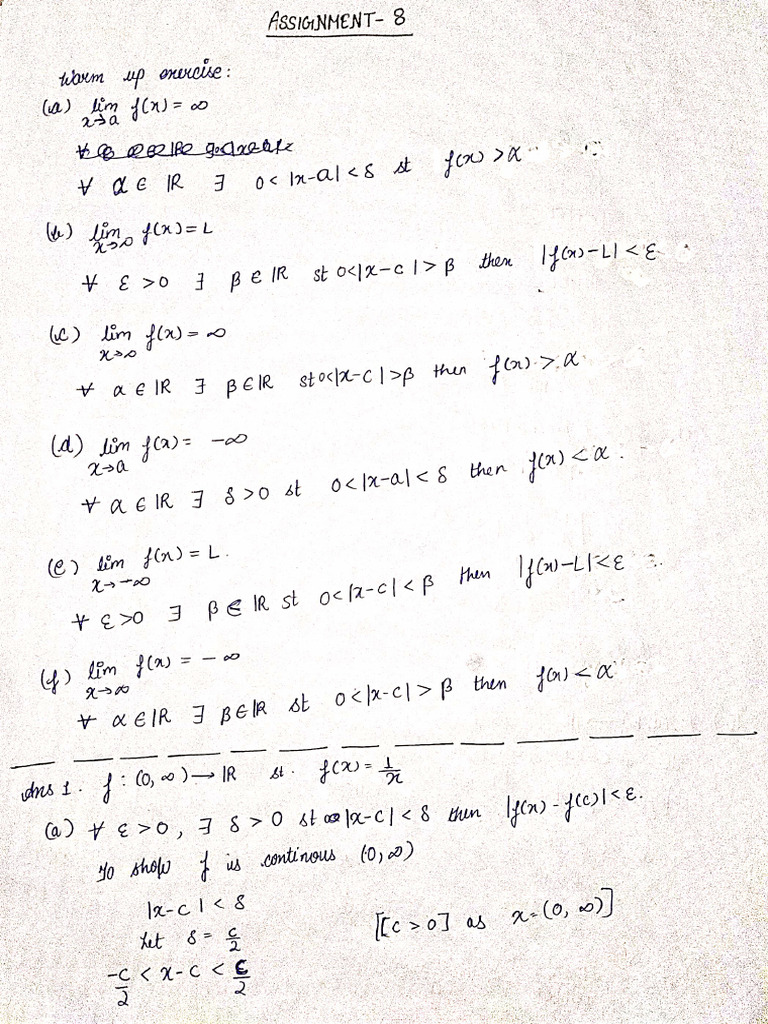 ASSIGNMENT- 8
Warm up exercise:
(a) lim x→a f(x) = ∞
∀ α ∈ ℝ ∃ 0< |x-a| < δ st f(x) > α
(b) lim x→∞ f(x) = L
∀ ε > 0 ∃ β ∈ ℝ st 0<|x-c| > β then |f(x)-L| < ε
(c) lim x→∞ f(x) = ∞
∀ α ∈ ℝ ∃ β ∈ ℝ st 0<|x-c| > β then f(x) > α
(d) lim x→a f(x) = -∞
∀ α ∈ ℝ ∃ δ > 0 st 0<|x-a| < δ then f(x) < α.
(e) lim x→-∞ f(x) = L.
∀ ε>0 ∃ β ∈ ℝ st 0<|x-c| < β then |f(x)-L| < ε
(f) lim x→∞ f(x) = -∞
∀ α ∈ ℝ ∃ β ∈ ℝ st 0<|x-c| > β then f(x) < α
Ans 1. f : (0, ∞) → ℝ st. f(x) = 1/x
(a) ∀ ε > 0, ∃ δ > 0 st |x-c| < δ then |f(x) - f(c)| < ε.
To show f is continous (0, ∞)
|x-c| < δ
Let δ = c/2 [[c > 0] as x = (0, ∞)]
-c/2 < x-c < c/2